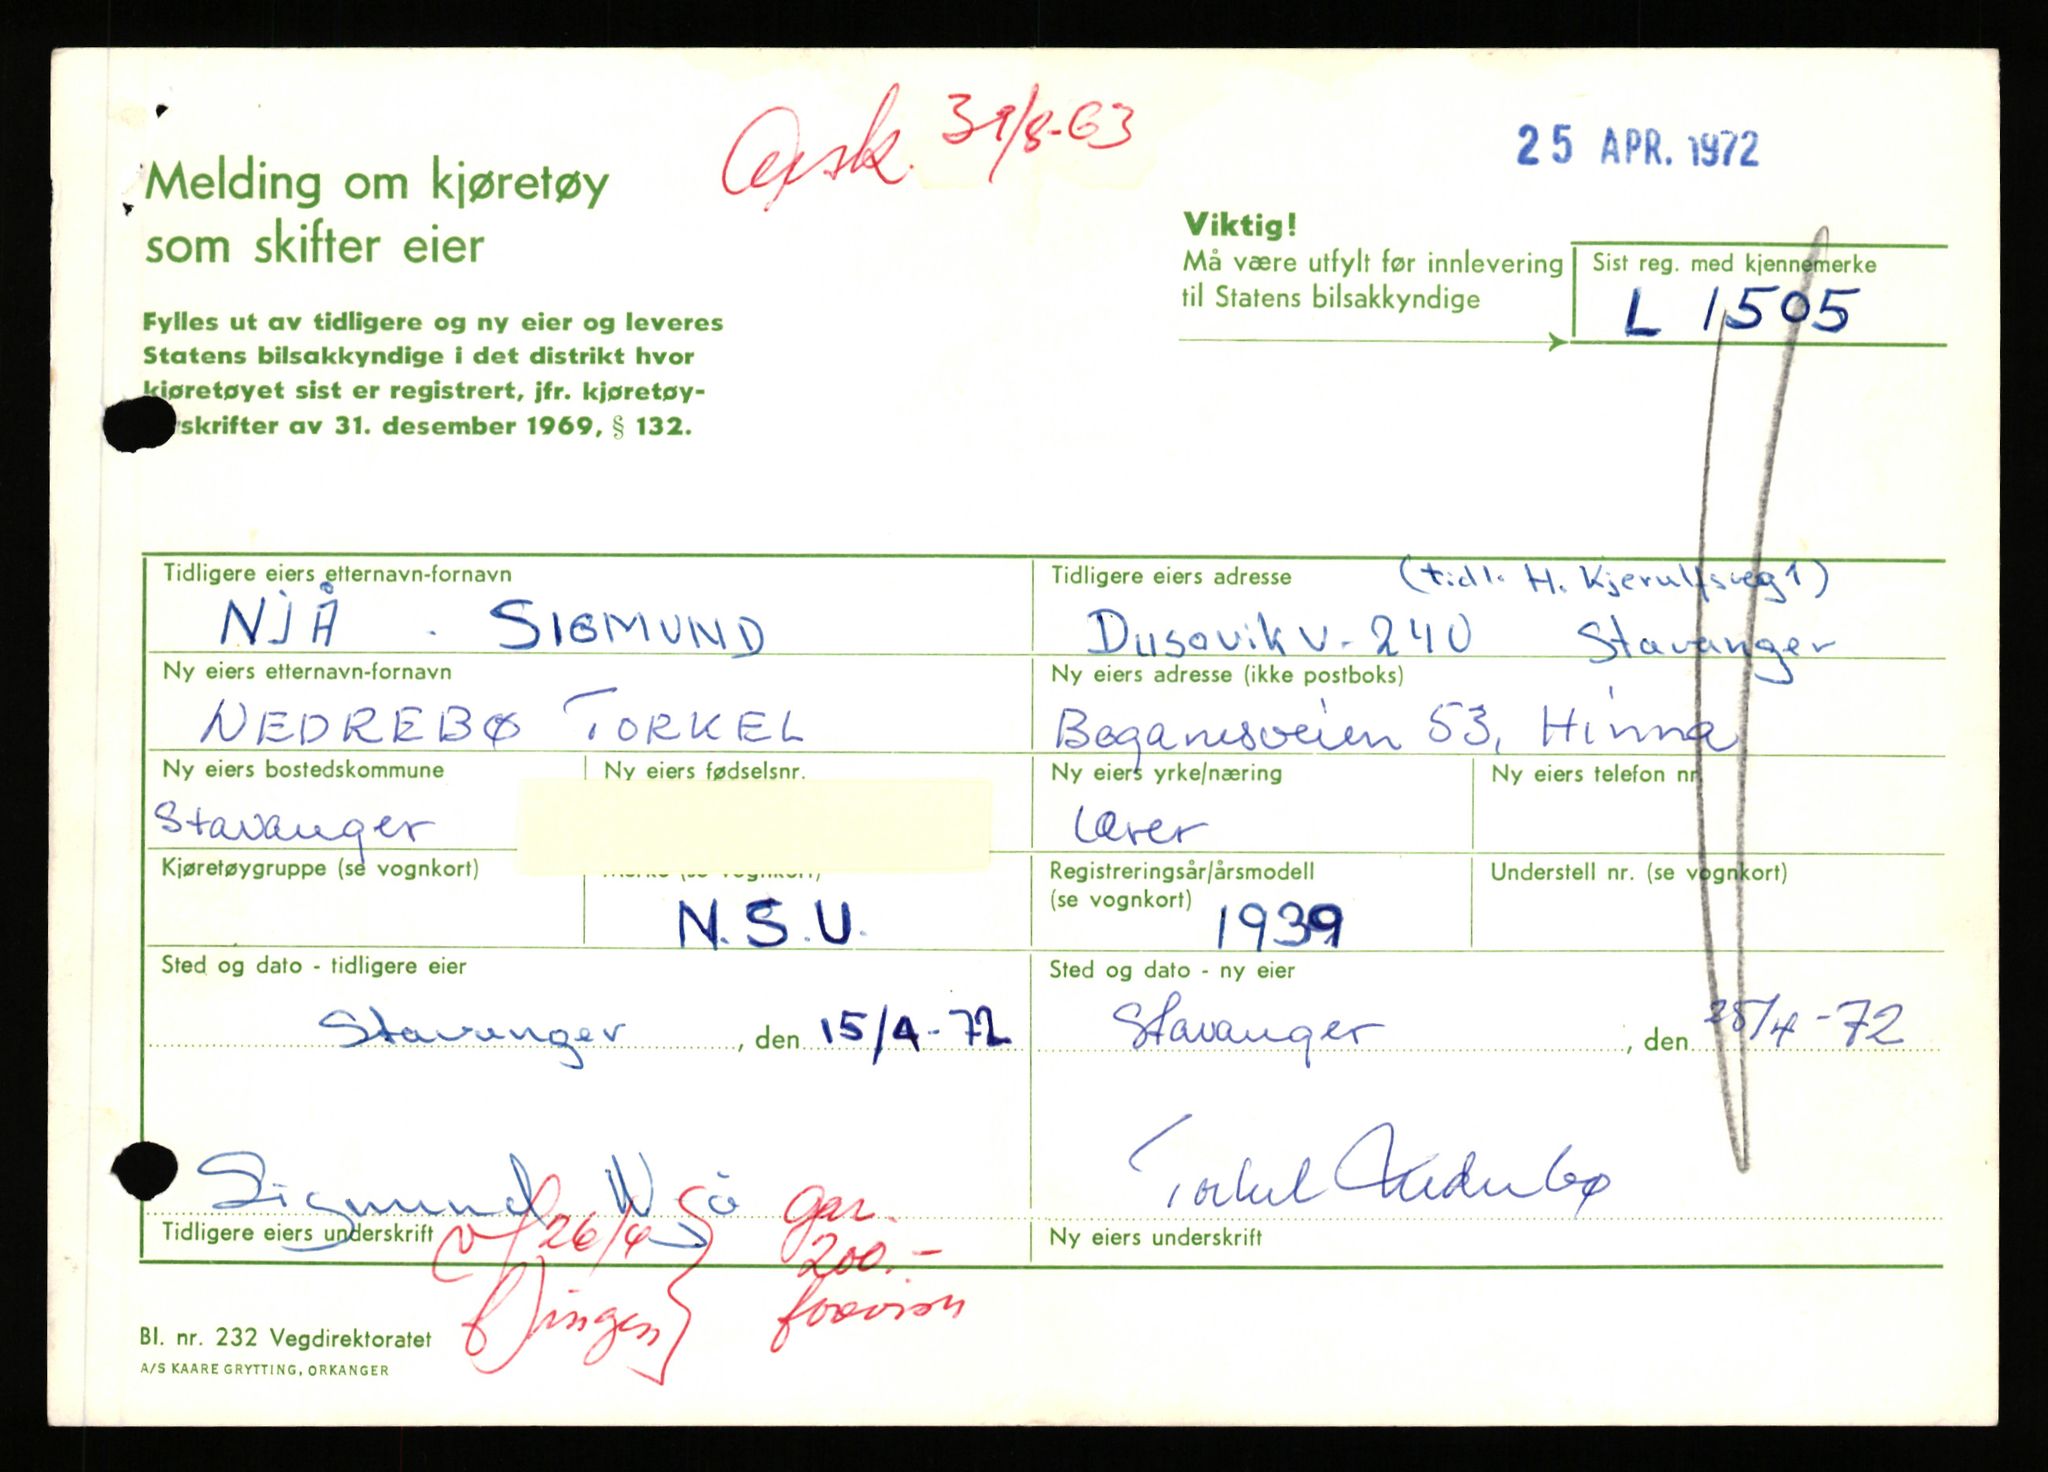 Avsk. 31/8-63
25 APR. 1972
Melding om kjøretøy
som skifter eier
Viktig!
Må være utfylt før innlevering
til Statens bilsakkyndige
Sist reg. med kjennemerke
L 1505
Fylles ut av tidligere og ny eier og leveres
Statens bilsakkyndige i det distrikt hvor
kjøretøyet sist er registrert, jfr. kjøretøy-
skrifter av 31. desember 1969, § 132.
Tidligere eiers etternavn-fornavn
NJÅ . SIGMUND
Tidligere eiers adresse
(tidl. H. Kjerulfsveg 1)
Dusavikv. 240 Stavanger
Ny eiers etternavn-fornavn
NEDREBØ TORKEL
Ny eiers adresse (ikke postboks)
Boganesveien 53, Hinna
Ny eiers bostedskommune
Stavanger
Ny eiers fødselsnr.
Ny eiers yrke/næring
Lærer
Ny eiers telefon nr.
Kjøretøygruppe (se vognkort)
Merke (se vognkort)
N.S.U.
Registreringsår/årsmodell
(se vognkort)
1939
Understell nr. (se vognkort)
Sted og dato - tidligere eier
Stavanger, den 15/4-72
Sted og dato - ny eier
Stavanger, den 25/4-72
Sigmund Njå
Tidligere eiers underskrift
Torkel Nedrebø
Ny eiers underskrift
26/4
gar.
200.-
ingen
Bl. nr. 232 Vegdirektoratet
A/S KAARE GRYTTING, ORKANGER